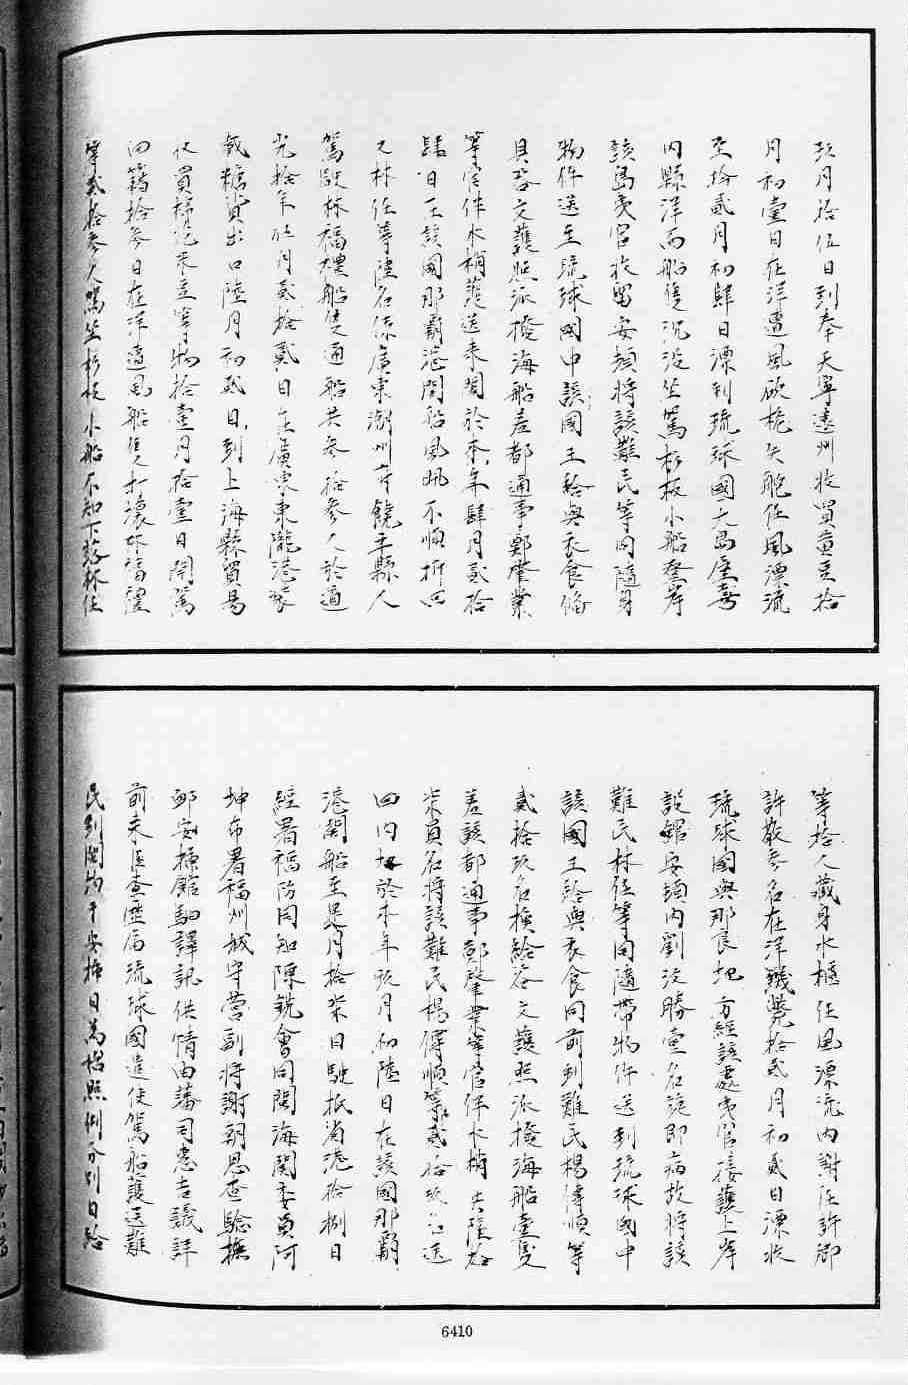 玖月拾伍日到奉天寧遠州收買黄豆拾
月初壹日在洋遭風砍桅失舵任風漂流
至拾貳月初肆日漂到琉球國大島屋喜
内縣洋面船隻沉没坐駕杉板小船登岸
該島夷官收留安頓將該難民等同隨身
物件送至琉球國中該國王給與衣食備
具咨文護照派撥海船差都通事鄭肇業
等官伴水梢護送來閩於本年肆月貳拾
肆日在該國那霸港開船風帆不順折回
又林任等陸名係廣東潮州府饒平縣人
駕駛林福禮船隻通船共叁拾叁人於道
光拾年伍月貳拾貳日在廣東東隴港裝
載糖貨出口陸月初貳日到上海縣貿易
收買棉花米豆等物拾壹月拾壹日開駕
回籍拾叁日在洋遭風船隻打壞林福禮
等貳拾叁人駕坐杉板小船不知下落林任
等拾人藏身水櫃任風漂流内謝任許鄉
許敬叁名在洋餓斃拾貳月初貳日漂收
琉球國與那良地方經該處夷官接護上岸
設館安頓内劉没勝壹名旋即病故將該
難民林任等同隨帶物件送到琉球國中
該國王給與衣食同前到難民楊偉順等
貳拾玖名換給咨文護照派撥海船壹隻
差該都通事鄭肇業等官伴水梢共陸拾
柒員名將該難民楊偉順等貳拾玖名送
回内地於本年玖月初陸日在該國那霸
港開船至是月拾柒日駛抵省港拾捌日
經署福防同知陳銑會同閩海關委員阿
坤布署福州城守營副將謝朝恩查驗撫
卹安插館驛譯訊供情由藩司惠吉議詳
前來臣查歷屆琉球國遣使駕船護送難
民到閩均于安插日為始照例分别日給